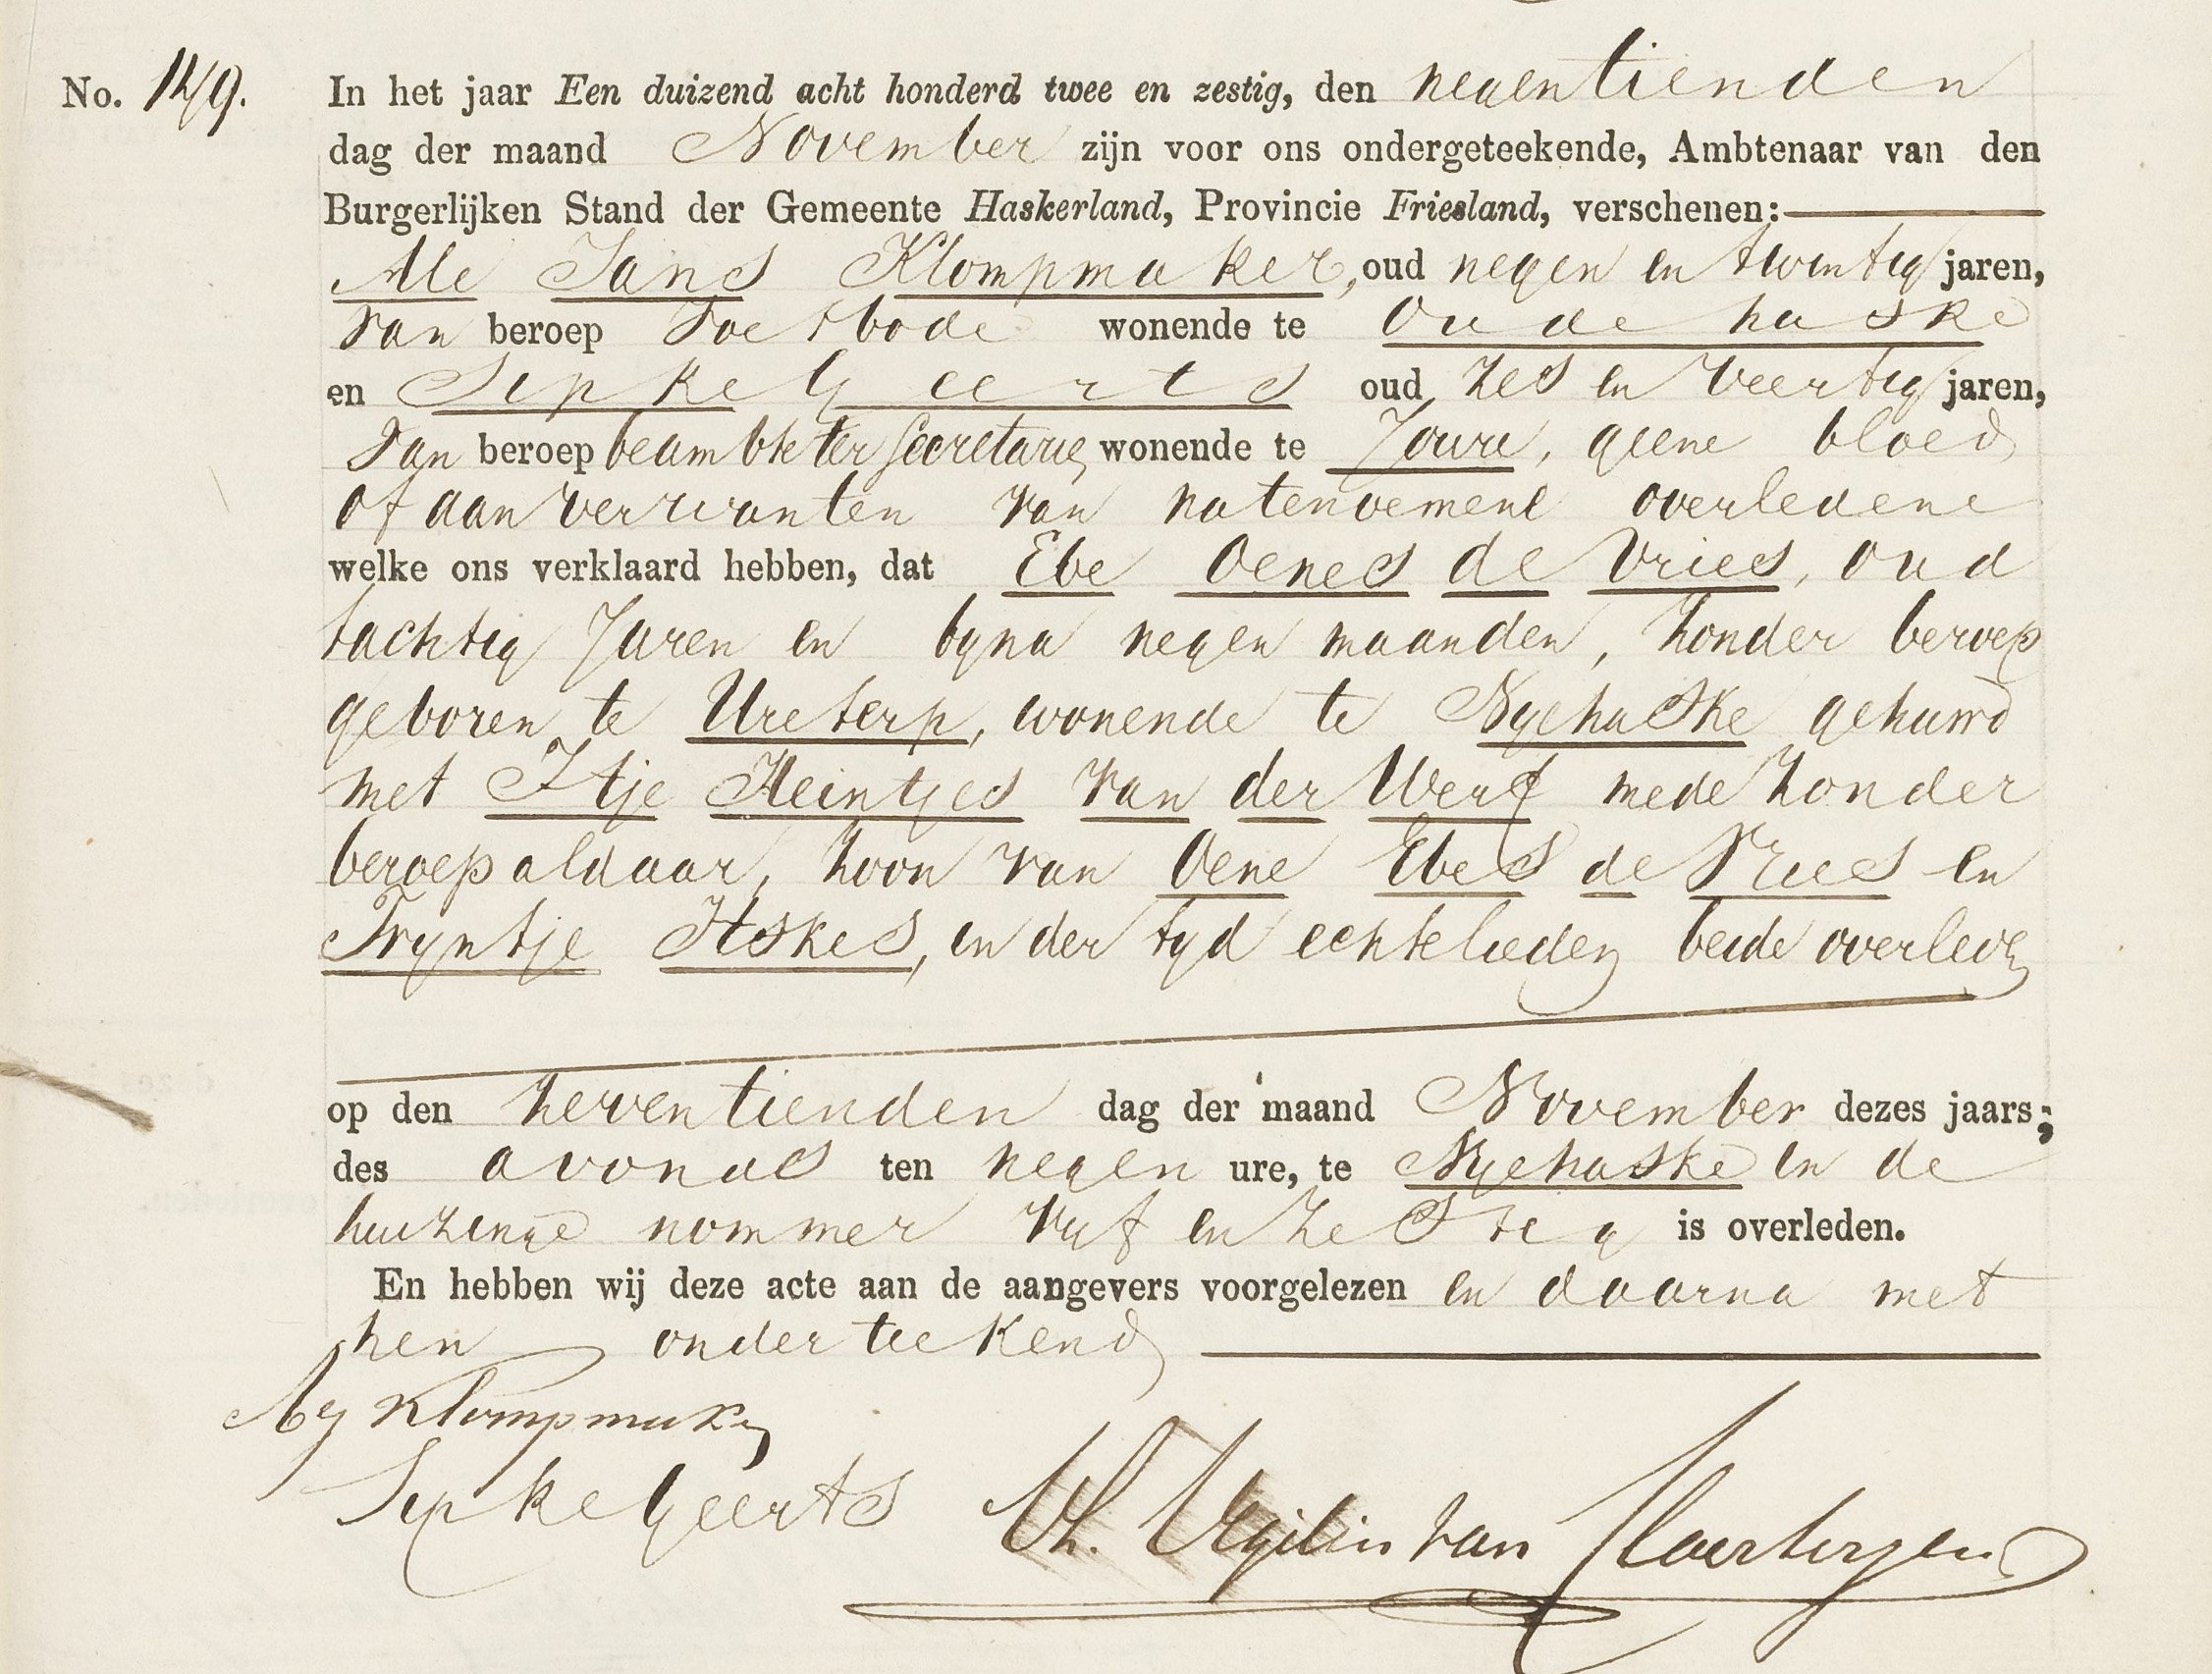 No. 149. In het jaar Een duizend acht honderd twee en zestig, den negentienden
dag der maand November zijn voor ons ondergeteekende, Ambtenaar van den
Burgerlijken Stand der Gemeente Haskerland, Provincie Friesland, verschenen:
Ale Jans Klompmaker, oud negen en twintig jaren,
van beroep Voetbode wonende te Oudehaske
en Sipke Geerts oud zes en veertig jaren,
van beroep beambte ter Secretarie wonende te Joure, geene bloed
of aanverwanten van natenoemene overledene
welke ons verklaard hebben, dat Ebe Oenes de Vries, oud
tachtig Jaren en byna negen maanden, zonder beroep
geboren te Ureterp, wonende te Nyehaske gehuwd
met Itje Heintjes van der Werf mede zonder
beroep aldaar, zoon van Oene Ebes de Vries en
Tryntje Itskes, in der tyd echtelieden beide overleden
op den zeventienden dag der maand November dezes jaars;
des avonds ten negen ure, te Nyehaske in de
huizinge nommer vyf en zestig is overleden.
En hebben wij deze acte aan de aangevers voorgelezen en daarna met
hen onderteekend
A J Klompmaker
Sipke Geerts Vegilin van Claerbergen